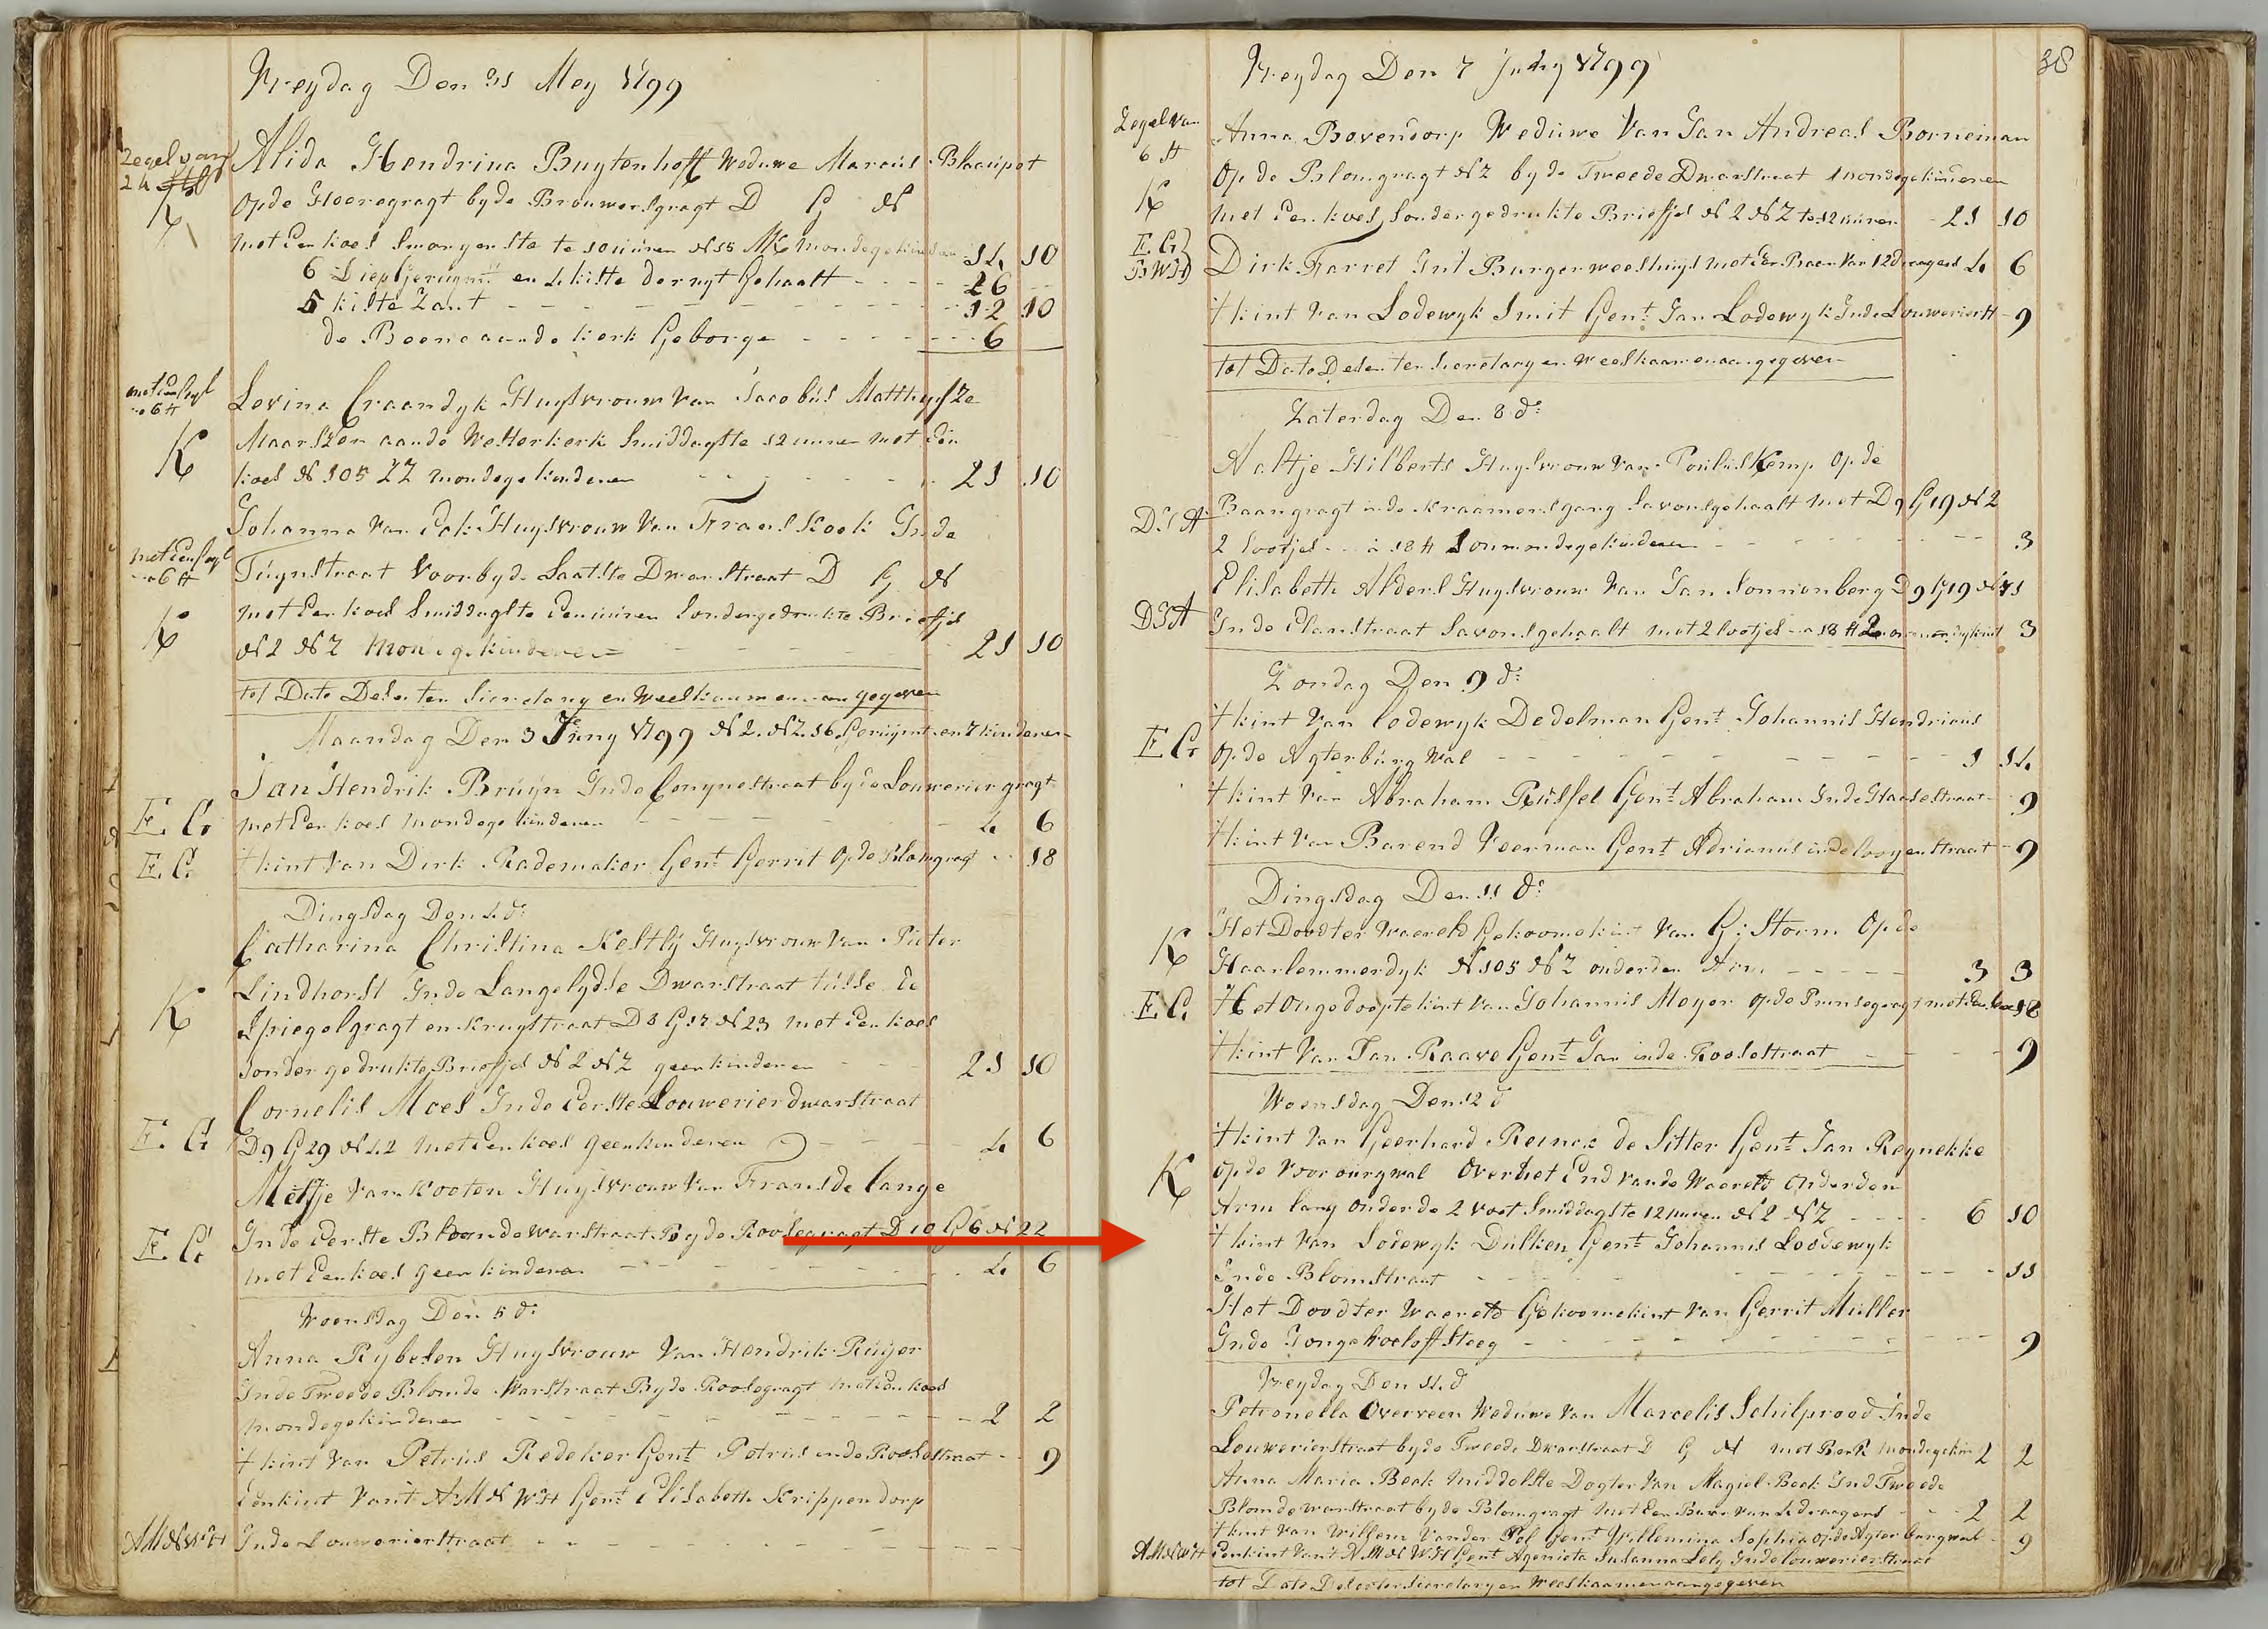 Vreydag Den 31 Mey 1799
Zegel van
24 st
Alida Hendrina Buytenhoff Weduwe Marcus Blaaupot
K
Opde Heeregragt byde Brouwersgragt D G N
met Een koes Smorgenste te 10 uuren N 15 mondege kinderen 14 10
6 Diep Geruymt en 4 kiste der uyt Gehaalt 26
5 kiste Zant 12 10
de Beene aande kerk Geborge 6
met Een Segl
6 st
Levina Craandyk Huysvrouw Van Jacobus Matthysze
K
Maarszen aande Westerkerk Smiddagste 12 uuren met Een
koes N 105 ZZ mondege kinderen 21 10
Johanna Van Eck Huysvrouw Van Frans Kook Inde
met Een Segl
6 st
Tuynstraat Voorbyde Laatste Dwarstraat D G N
K
met Een koes Smiddagste Een uuren Sonder gedrukte Briefjes
N 2 NZ mondege kinderen 21 10
tot Dato Dese ter Secretary en Weeskaamer aangegeven
Maandag Den 3 Juny 1799 N 2. NZ. 16 Geruymt en 7 kinderen
Jan Hendrik Bruyn Inde Conynestraat byde Louweriergragt
E. G
met Een koes mondege kinderen 4 6
E. G.
t kint Van Dirk Rademaker Gent Gerrit Opde Blomgragt 18
Dingsdag Den 4 do
Catharina Christina Kestly Huysvrouw Van Pieter
Lindhorst Inde Langelydse Dwarstraat tusse de
K
Spiegelgragt en Kruystraat D 8 G 17 N 23 met Een koes
Sonder gedrukte Briefjes N 2 NZ geen kinderen 21 10
Cornelis Moes Inde Eerste Louwerier dwarstraat
E. G
D 9 G 29 N 42 met Een koes geen kinderen 4 6
Metje Van Kooten Huysvrouw Van Frans de Lange
E. G.
Inde Eerste Bloemdewarstraat Byde Roosegragt D 10 G 6 N 22
met Een koes geen kinderen 4 6
Woensdag Den 5 do
Anna Rybesen Huysvrouw Van Hendrik Ruyer
Inde Tweede Blomde Warstraat Byde Roosegragt met Een koes
mondege kinderen 2 2
t kint Van Petrus Redeker Gent Petrus inde Roosestraat 9
Een kint Vant AM N WH Gent Elisabeth Krippendorp
AM N WH
Inde Louwerierstraat
Vreydag Den 7 Juny 1799
38
Zegel Van
6 st
Anna Bovendorp Weduwe Van Jan Andreas Borneman
Op de Blomgragt NZ byde Tweede Dwarstraat mondege kinderen
K
met Een koes Sonder gedrukte Briefjes N 2 NZ te 12 uuren 21 10
E. G
BWH
Dirk Farret Int Burgerweeshuys met Een Baar Van 12 dragers 4 6
t kint Van Lodewyk Smit Gent Jan Lodewyk Inde Louwerierst 9
tot Dato Dese ter Secretary en Weeskaamer aangegeven
Zaterdag Den 8 do
Aaltje Hilberts Huysvrouw Van Poulus Kemp Op de
DSA
Baangragt inde Kraamersgang Savons gehaalt met D 9 G 19 N 2
2 lootjes a 18 st mondege kinderen 3
Elisabeth Alders Huysvrouw Van Jan Sonnenberg D 9 G 19 N 71
DSA
Inde Elanstraat Savons gehaalt met 2 lootjes a 18 st 3
Zondag Den 9 do
t kint Van Lodewyk Dedelman Gent Johannis Hendricus
E G
op de Agterburg Wal 1 14
t kint Van Abraham Russel Gent Abraham Inde Haasestraat 9
t kint Van Barend Veerman Gent Adrianus inde looyenstraat 9
Dingsdag Den 11 do
K
Het Dood ter Waereld Gekoome kint Van G; Storm Op de
Haarlemmerdyk N 105 NZ onder den Arm 3 3
E. G.
Het Ongedoopte kint Van Johannis Meyer opde Prinsegragt met Een koes 18
t kint Van Jan Raave Gent Jan inde Roosestraat 9
Woensdag Den 12 do
t kint Van Geerhard Reinou de Sitter Gent Jan Reynekke
K
op de Voorburgwal Over het End Vande Waereld Onder den
Arm lang onder de 2 Voet Smiddagste 12 uuren N 2 NZ 6 10
t kint Van Lodewyk Dulken Gent Johannis Loodewyk
Inde Blomstraat 11
Het Dood ter Waereld Gekoome kint Van Gerrit Muller
Inde Jonge Roelofsteeg 9
Vreydag Den 14 do
Petronella Overveen Weduwe Van Marcelis Schilprood Inde
Louwerierstraat byde Tweede Dwarstraat D G N met Berk mondege kin 2 2
Anna Maria Beek middelste Dogter Van Magiel Beek Ind Tweede
Blomdewarstraat byde Blomgragt met Een Baar Van 4 draagers 2 2
t kint Van Willem Vander Pol Gent Willemina Sophia op de Agterburgwal 9
AM N WH
Een kint Van't AM N WH Gent Agenieta Susanna Lely Inde louwerierstraat
tot Dato Dese ter Secretary en Weeskaamer aangegeven